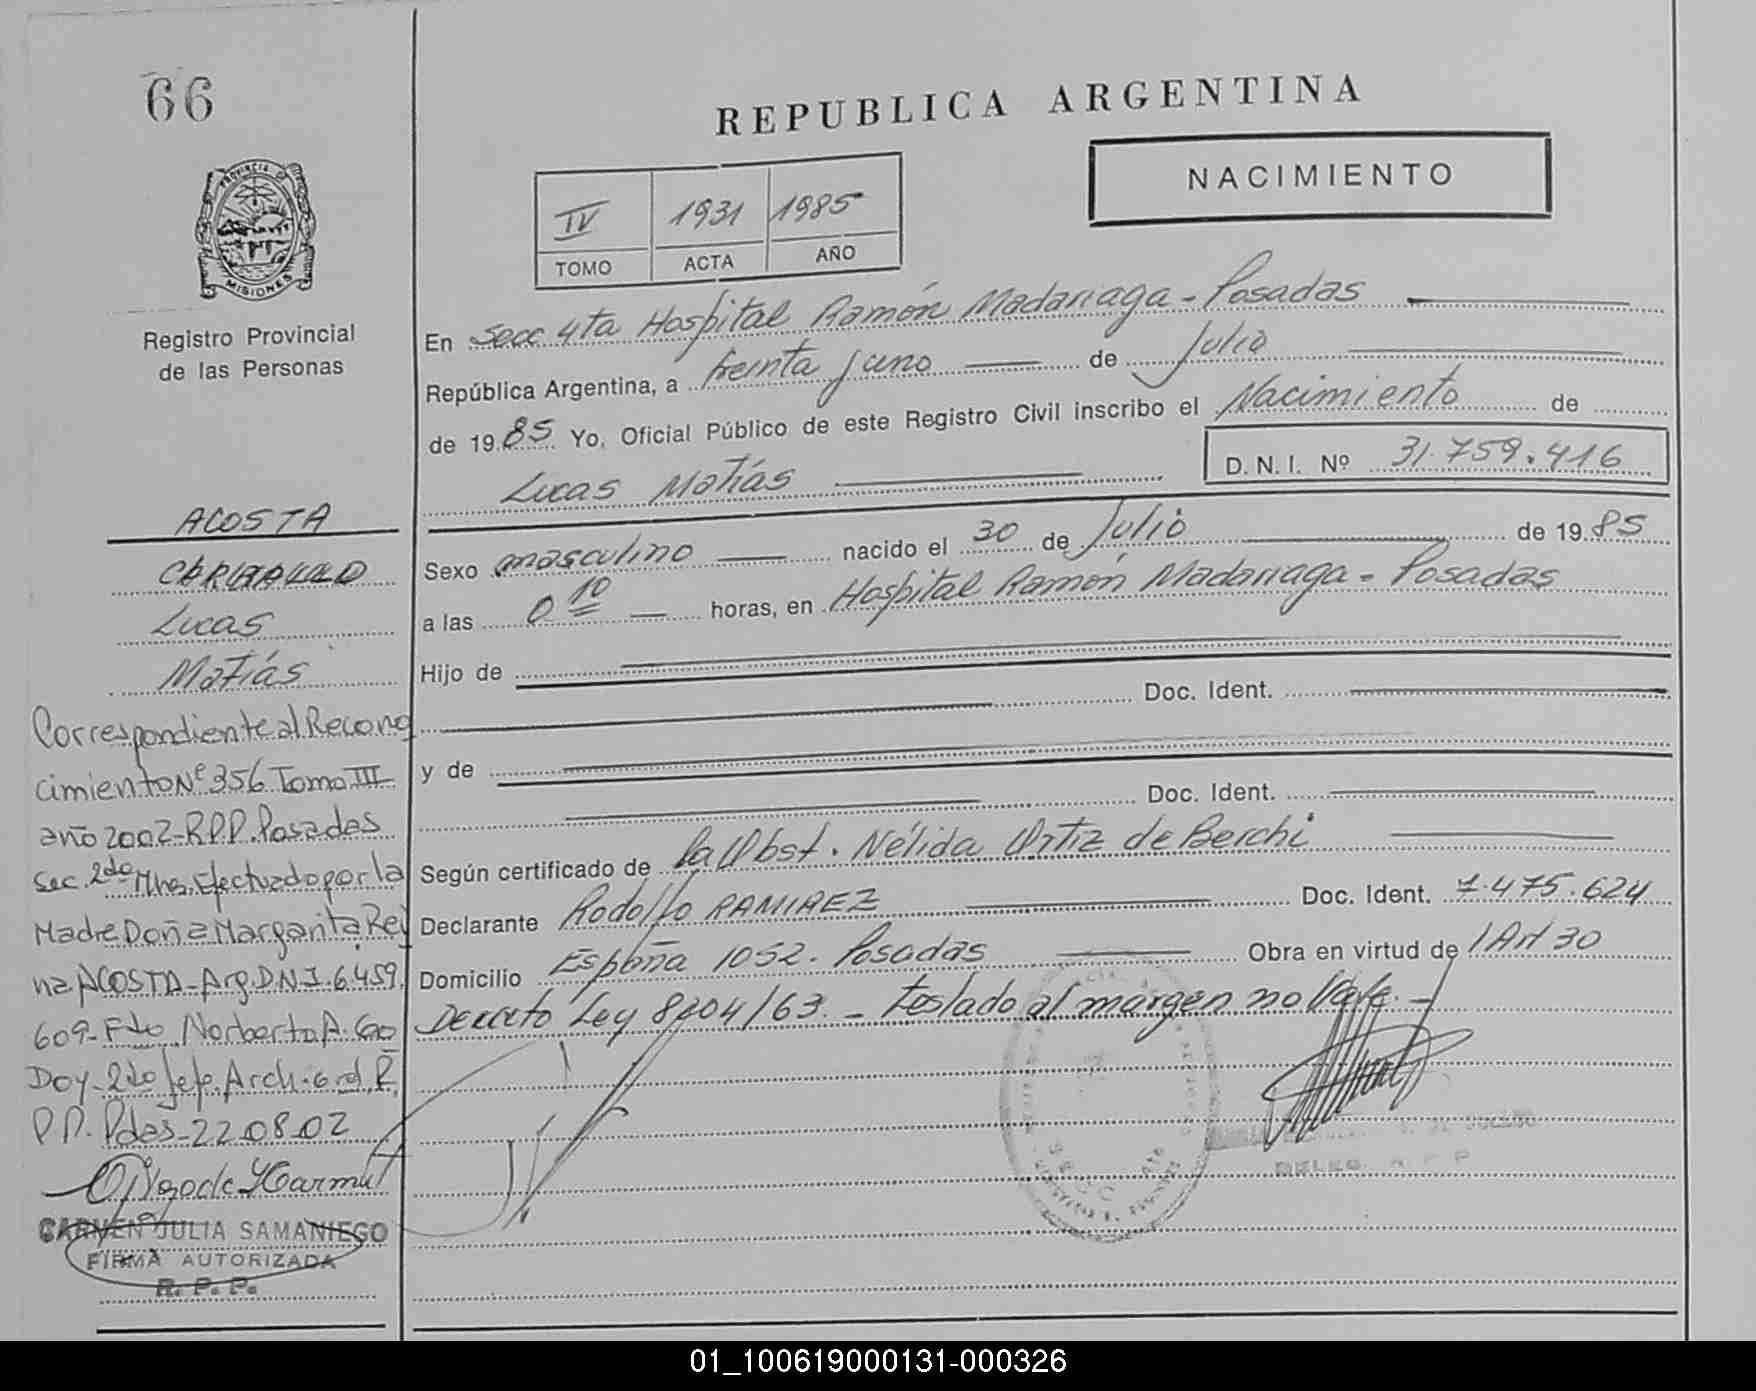 66
REPUBLICA ARGENTINA
NACIMIENTO
IV 1931 1985
TOMO ACTA AÑO
PROVINCIA DE
MISIONES
Registro Provincial
de las Personas
En Secc 4ta Hospital Ramón Madariaga - Posadas
República Argentina, a treinta y uno de Julio
de 1985 Yo, Oficial Público de este Registro Civil inscribo el Nacimiento de
Lucas Matías
D. N. I. Nº 31.759.416
Sexo masculino nacido el 30 de Julio de 1985
a las 0 10 horas, en Hospital Ramón Madariaga - Posadas
Hijo de
Doc. Ident.
y de
Doc. Ident.
Según certificado de la Obst. Nélida Ortiz de Berchi
Declarante Rodolfo RAMIREZ Doc. Ident. 7.475.624
Domicilio España 1052. Posadas Obra en virtud de l Art 30
Decreto Ley 8204/63. - Testado al margen no Vale. -
ACOSTA
Lucas
Matías
Correspondiente al Recono
cimiento Nº 356 Tomo III
año 2002-R.P.P. Posadas
Sec. 2da Mnes. Efectuado por la
Madre Doña Margarita Rey
na ACOSTA-Arg.D.N.I. 6.459.
609-Fdo. Norberto A. Go
Doy-2do Jefe. Arch. Gral. R.
P.P. Pdas-22.08.02
CARMEN JULIA SAMANIEGO
FIRMA AUTORIZADA
R. P. P.
DELEG. R P P
01_100619000131-000326